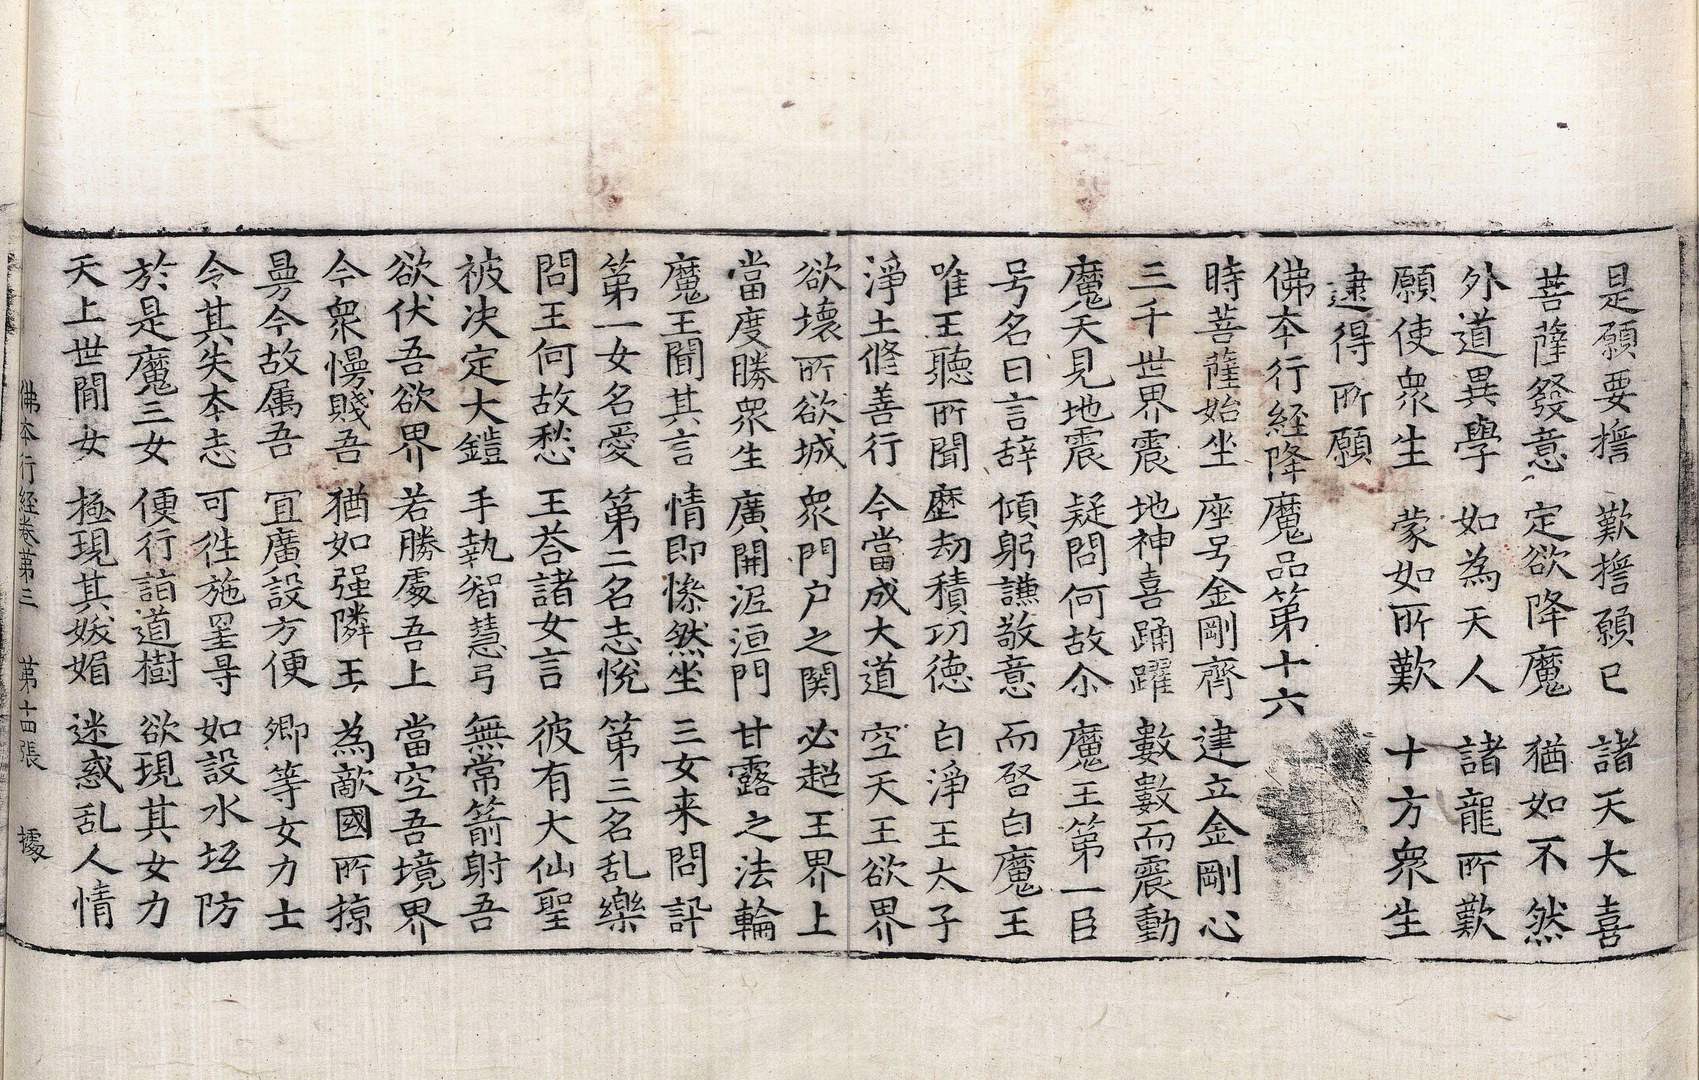 是願要擔 歎擔願已 諸天大喜
菩薩發意 定欲降魔 猶如不然
外道異學 如為天人 諸龍所歎
願使衆生 蒙如所歎 十方衆生
逮得所願
佛本行経降魔品第十六
時菩薩始坐 座号金剛齊 建立金剛心
三千世界震 地神喜踊躍 數數而震動
魔天見地震 疑問何故尒 魔王第一臣
号名曰言辞 傾躬謙敬意 而啓白魔王
唯王聽所聞 歷劫積功德 白淨王太子
淨土修善行 今當成大道 空天王欲界
欲壞所欲城 衆門戶之関 必超王界上
當度勝衆生 廣開泥洹門 甘露之法輪
魔王聞其言 情即慘然坐 三女来問訊
第一女名愛 第二名志悅 第三名乱樂
問王何故愁 王荅諸女言 彼有大仙聖
被决定大鎧 手執智慧弓 無常箭射吾
欲伏吾欲界 若勝處吾上 當空吾境界
今衆慢賤吾 猶如强隣王 為敵國所掠
曼今故属吾 冝廣設方便 卿等女力士
令其失本志 可徃施罣㝵 如設水坻防
於是魔三女 便行詣道樹 欲現其女力
天上世間女 極現其妭媚 迷惑乱人情
佛本行経卷第三 第十四張 據